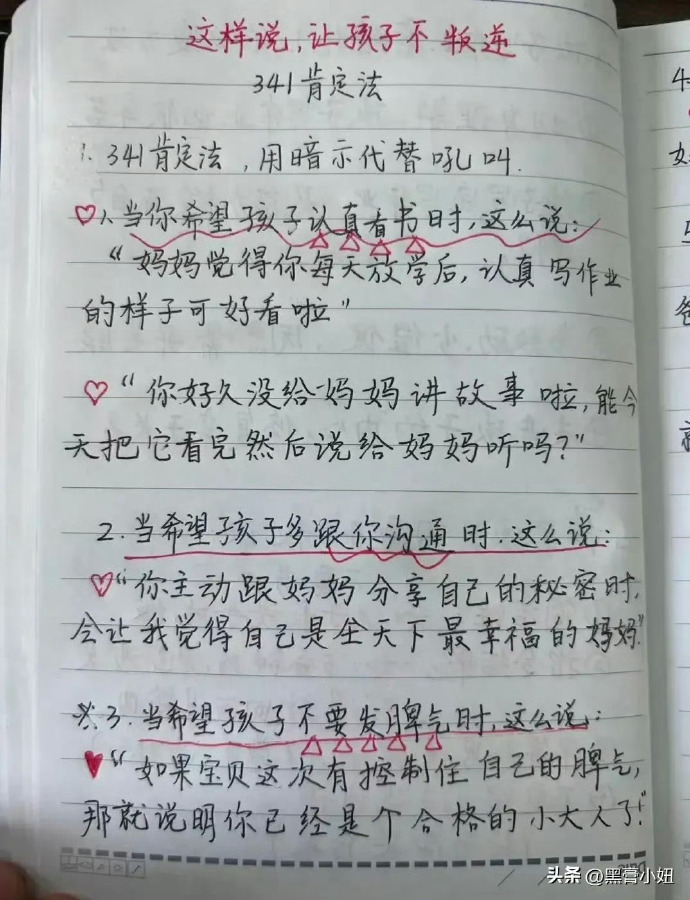 这样说，让孩子不叛逆
341肯定法
1. 341肯定法，用暗示代替吼叫.
♡1、当你希望孩子认真看书时，这么说：
“妈妈觉得你每天放学后，认真写作业
的样子可好看啦”
♡“你好久没给妈妈讲故事啦，能今
天把它看完然后说给妈妈听吗？”
2. 当希望孩子多跟你沟通时. 这么说：
♡“你主动跟妈妈分享自己的秘密时，
会让我觉得自己是全天下最幸福的妈妈”
3. 当希望孩子不要发脾气时，这么说：
♥“如果宝贝这次有控制住自己的脾气，
那就说明你已经是个合格的小大人了！”
Date
头条 @黑膏小妞